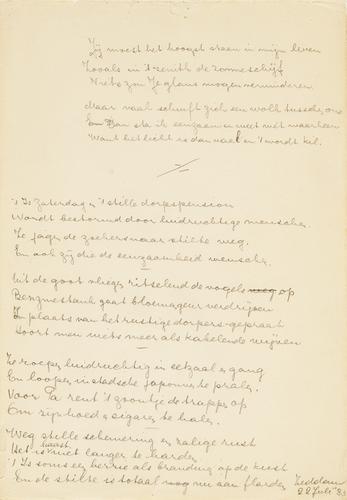 Zij moest het hoogst staan in mijn leven
Zooals in 't zenith de zonneschijf
Niets zou Je glans mogen verminderen
Maar vaak schuift zich een wolk tusschen ons
En dan sta ik eenzaam en weet niet waarheen
Want het licht is dan vaal en 't wordt kil.
't Is Zaterdag en 't stille dorpspension
Wordt bestormd door luidruchtige menschen.
Ze jagen de zoekers naar stilte weg.
En ook zij die de eenzaamheid wenschen.
Uit de goot vliegen ritselend de vogels weg op
Benzinestank gaat bloemgeur verdrijven
En plaats van het rustige dorpers-gepraat
Hoort men niets meer als kakelende wijven
Ze roepen luidruchtig in eetzaal en gang
En loopen in stadsche japonnen te pralen.
Voor Pa rent 't zoontje de trappen op
Om zijn hoed en sigaren te halen.
Weg stille schemering en zalige rust
Het is haast niet langer te harden
't Is soms een herrie als branding op de kust
En de stilte is totaal nu aan flarden
Zeddam
22 Juli